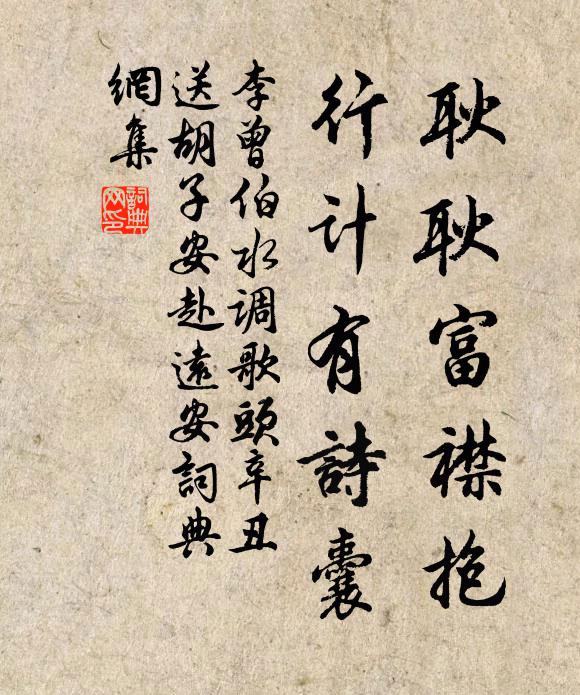 耿耿富襟抱
行计有詩囊
李曾伯水調歌頭辛丑
送胡子安赴遠安詞典
網集
詞典網印